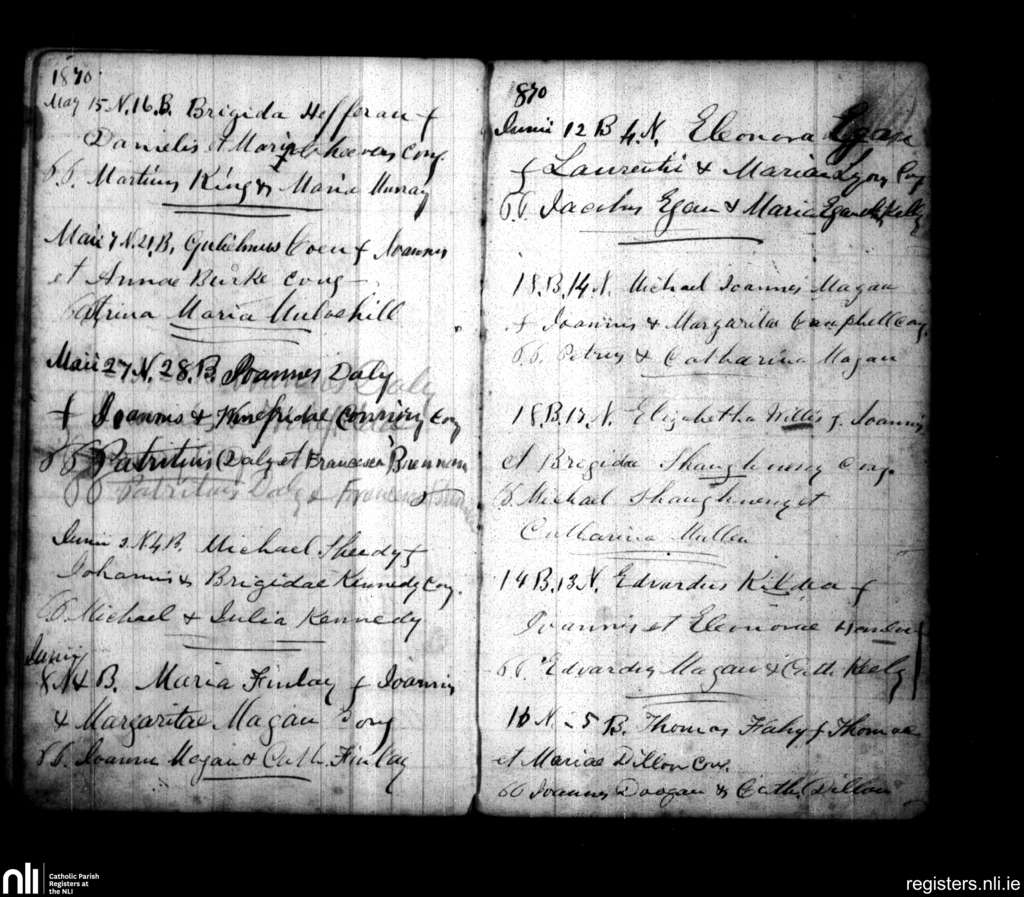 1870
May 15 N. 16. B. Brigida Hefferan f
Danielis et Maria Cong.
P.P. Martinus King & Maria Murray
Maii 7 N. 21. B. Gulielmus Coen f Joannis
et Annae Burke Cong
Maria Mulvehill
Maii 27 N. 28. B. Joannes Daly
f Joannis & Winefridae Conniry Cong
P P Patritius Daly et Francesca Brennan
P P Patritius Daly & Francesca
Junii 3 N 4 B. Michael Sheedy f
Johannis & Brigidae Kennedy Cong.
P.P. Michael & Julia Kennedy
Junii
8 N & B. Maria Finlay f Joannis
& Margaritae Magan Cong
P.P. Joannes Magan & Cath. Finlay
870
Junii 12 B 4. N. Eleonora Egan
f Laurentii & Maria Lyons Cong
P.P. Jacobus Egan & Maria Kelly
18. B. 14 N. Michael Joannes Magan
f Joannis & Margaritae Campbell Cong.
P.P. Petrus & Catharina Magan
18. B. 17. N. Elizabetha Willis f. Joannis
et Brigida Shaughnessy Cong.
P.P. Michael Shaughnessy et
Catharina Mullen
14 B. 13 N. Edvardus Kildea f
Joannis et Eleonorae Hanlon
P.P. Edvardus Magan & Cath Keely
16 N - 5 B. Thomas Fahy f Thomae
et Mariae Dillon Con.
P P Joannes Doogan & Cath. Dillon
nli
Catholic Parish
Registers at
the NLI
registers.nli.ie